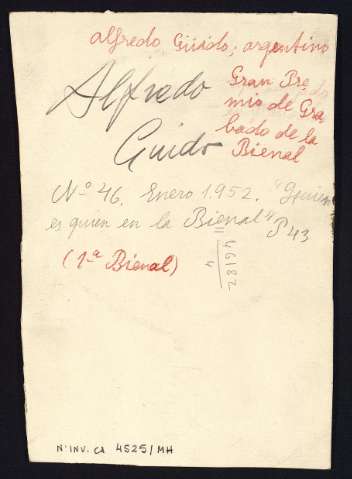 Alfredo Guido, argentino
Alfredo
Guido
Gran Pre
mio de Gra
bado de la
Bienal
Nº 46. Enero 1.952. "Quien
es quien en la Bienal" P 43
(1ª Bienal)
4
Nº INV. CA 4525/MH